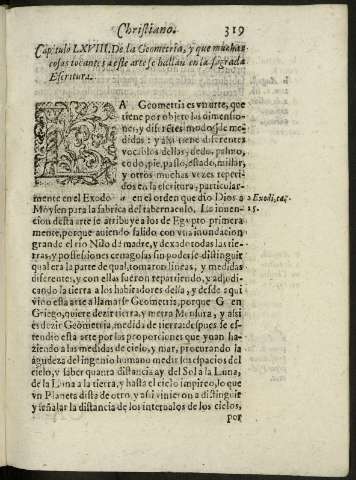 Christiano.
319
Capitulo LXVIII. De la Geometria, y que muchas
cosas tocantes a este arte se hallan en la sagrada
Escritura.
LA Geometria es vn arte, que
tiene por objeto las dimensio-
nes, y diferẽtes modos de me-
didas: y assi tiene diferentes
vocablos dellas, dedo, palmo,
codo, pie, passo, estado, millar,
y otros muchas vezes repeti-
dos en la escritura, particular-
mente en el Exodo a en el orden que dio Dios a
Moysen para la fabrica del tabernaculo. La inuen-
cion desta arte se atribuye a los de Egypto primera
mente, porque auiendo salido con vna inundacion
grande el rio Nilo de madre, y dexado todas las tie-
rras, y possessiones cenagosas sin poderse distinguir
qual era la parte de qual, tomaron lineas, y medidas
diferentes, y con ellas fueron repartiendo, y adjudi-
cando la tierra a los habitadores della, y desde aqui
vino esta arte a llamarse Geometria, porque G en
Griego, quiere dezir tierra, y metra Mensura, y assi
es dezir Geometria, medida de tierra: despues se es-
tendio esta arte por las proporciones que yuan ha-
ziendo a las medidas de cielo, y mar, procurando la
agudeza del ingenio humano medir los espacios del
cielo, y saber quanta distancia ay del Sol a la Luna,
de la Luna a la tierra, y hasta el cielo impireo, lo que
vn Planeta dista de otro, y assi vinieron a distinguir
y señalar la distancia de los interualos de los cielos,
por
a Exodi, cap.
25.